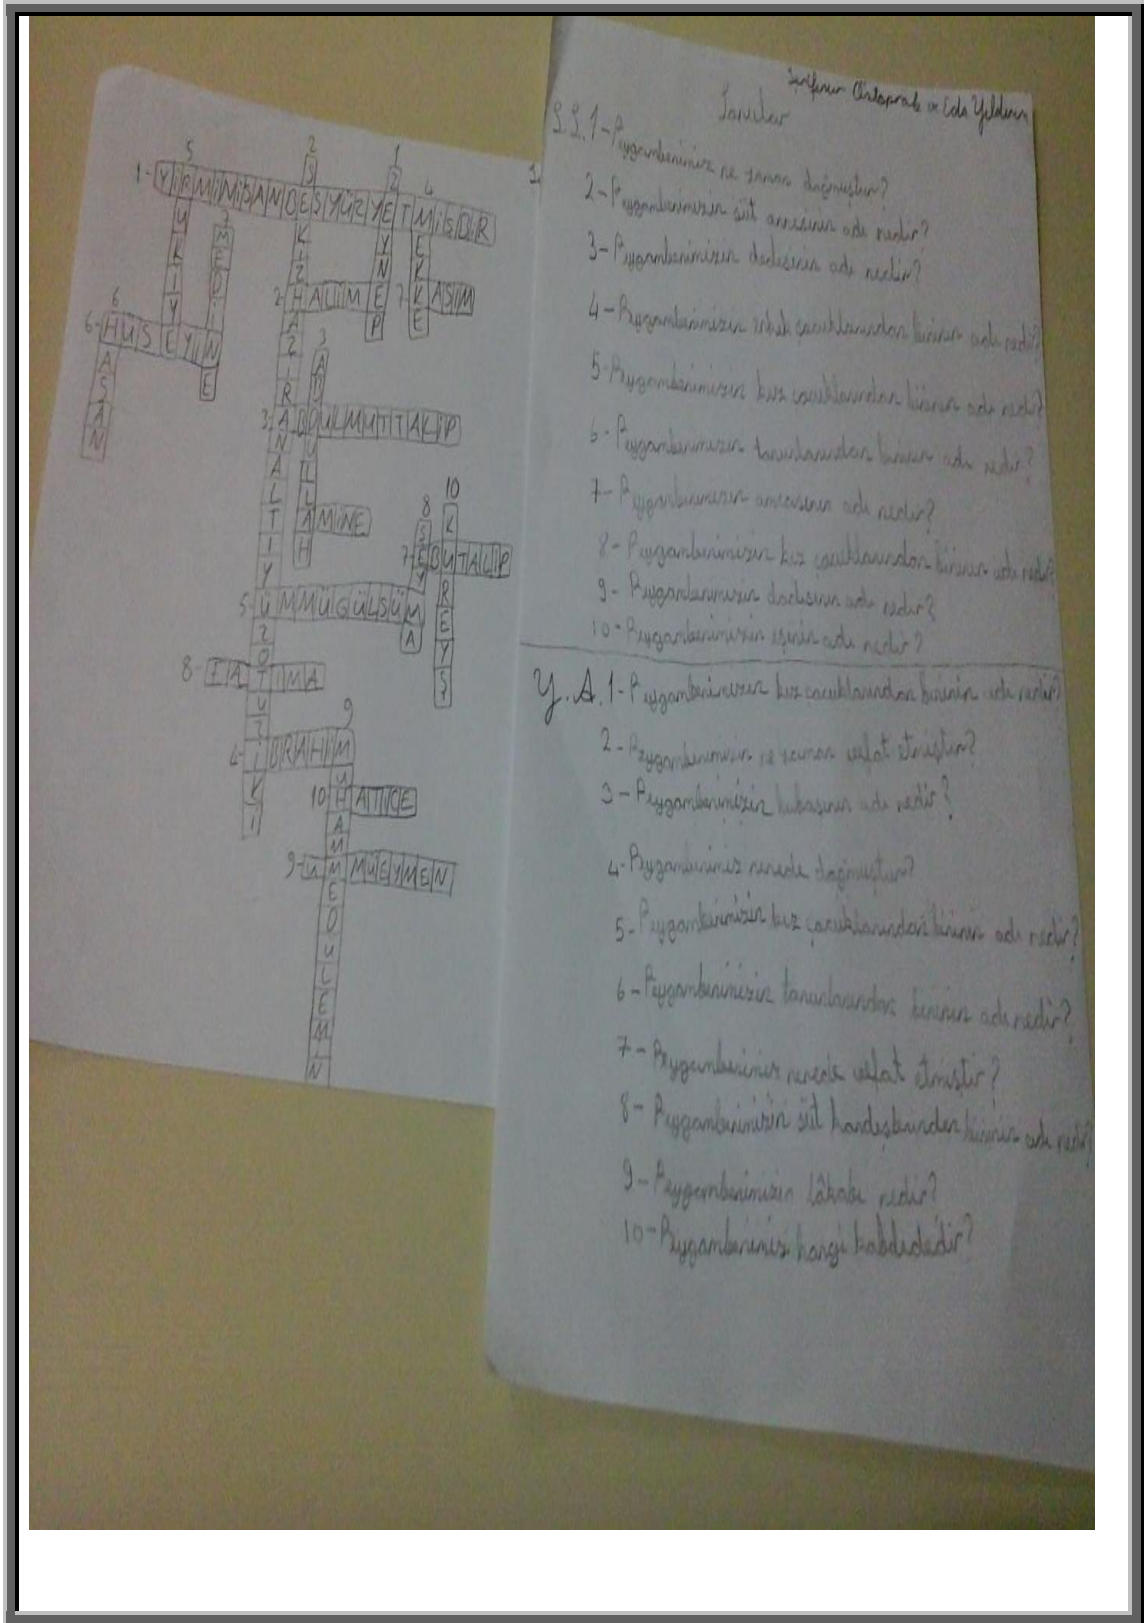 Şerifenur Ortaprak ve Eda Yıldırım
Sorular
S.S. 1-Peygamberimiz ne zaman doğmuştur?
2-Peygamberimizin süt annesinin adı nedir?
3-Peygamberimizin dedesinin adı nedir?
4-Peygamberimizin erkek çocuklarından birinin adı nedir?
5-Peygamberimizin kız çocuklarından birinin adı nedir?
6-Peygamberimizin torunlarından birinin adı nedir?
7-Peygamberimizin amcasının adı nedir?
8-Peygamberimizin kız çocuklarından birinin adı nedir?
9-Peygamberimizin dadısının adı nedir?
10-Peygamberimizin eşinin adı nedir?
Y.A. 1-Peygamberimizin kız çocuklarından birinin adı nedir?
2-Peygamberimizin ne zaman vefat etmiştir?
3-Peygamberimizin babasının adı nedir?
4-Peygamberimiz nerede doğmuştur?
5-Peygamberimizin kız çocuklarından birinin adı nedir?
6-Peygamberimizin torunlarından birinin adı nedir?
7-Peygamberimiz nerede vefat etmiştir?
8-Peygamberimizin süt kardeşlerinden birinin adı nedir?
9-Peygamberimizin lâkabı nedir?
10-Peygamberimiz hangi kabiledendir?
1-YİRMİNİSANBEŞYÜZYETMİŞBİR
2-HALİME
7-KASIM
6-HÜSEYİN
3-ABDULMUTTALİP
AMİNE
7-EBUTALİP
5-ÜMMÜGÜLSÜM
8-FATIMA
4-İBRAHİM
10 HATİCE
9-UMMUEYMEN
1 ZEYNEP
2 SEKİZHAZİRANALTIYÜZOTUZİKİ
3 ABDULLAH
4 MEKKE
5 RUKİYE
6 HASAN
7 MEDİNE
8 ŞEYMA
9 MUHAMMEDULEMİN
10 KUREYŞ